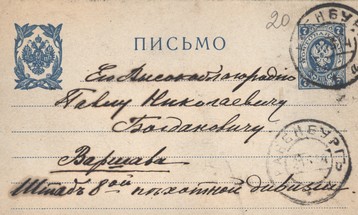 20
ПИСЬМО
Его Высокоблагородію
Павлу Николаевичу
Богдановичу
Варшава
Штабъ 8ой пѣхотной дивизіи